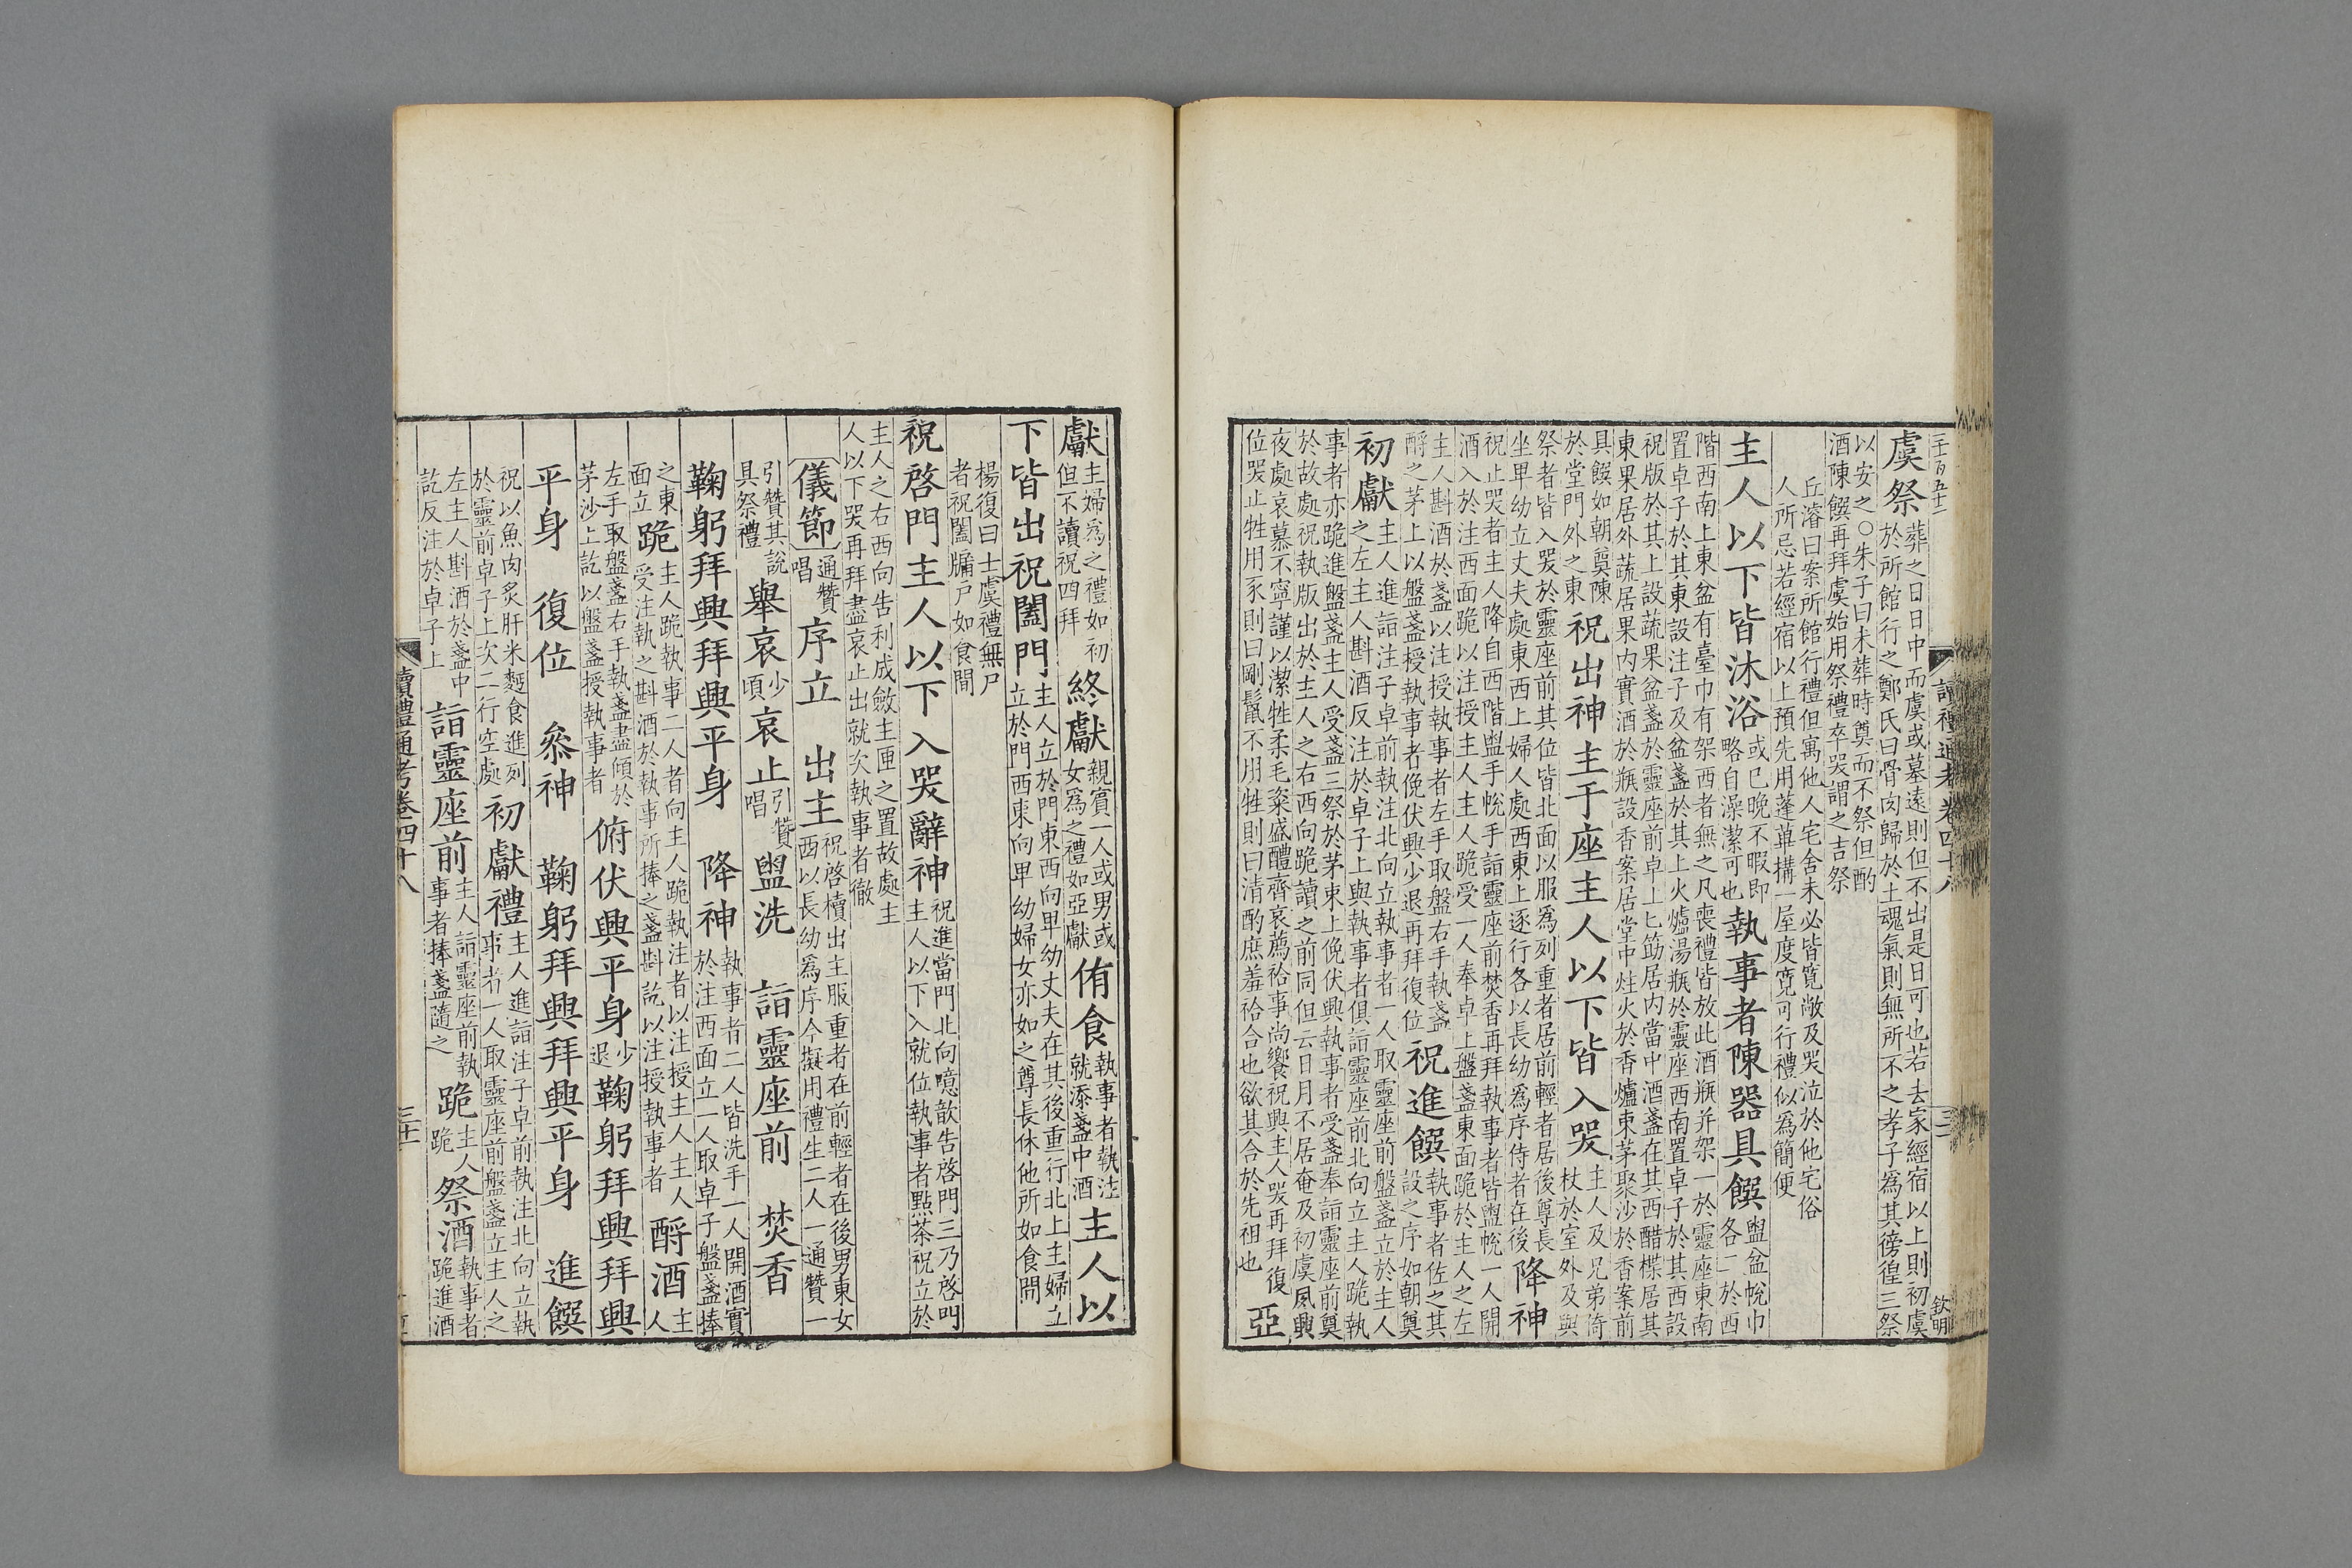 二千百五十二
讀禮通考卷四十八
欽明
虞祭
葬之日日中而虞或墓遠則但不出是日可也若去家經宿以上則初虞
於所館行之鄭氏曰骨肉歸於土魂氣則無所不之孝子爲其徬徨三祭
以安之○朱子曰未葬時奠而不祭但酌
酒陳饌再拜虞始用祭禮卒哭謂之吉祭
丘濬曰案所館行禮但寓他人宅舍未必皆寬敞及哭泣於他宅俗
人所忌若經宿以上預先用蓬蓽搆一屋度寬可行禮似爲簡便
主人以下皆沐浴
或已晚不暇即
略自澡潔可也
執事者陳器具饌
盥盆帨巾
各二於西
階西南上東盆有臺巾有架西者無之凡喪禮皆放此酒瓶并架一於靈座東南
置卓子於其東設注子及盆盞於其上火爐湯瓶於靈座西南置卓子於其西設
祝版於其上設蔬果盆盞於靈座前卓上匕筯居內當中酒盞在其西醋楪居其
東果居外蔬居果內實酒於瓶設香案居堂中炷火於香爐束茅聚沙於香案前
具饌如朝奠陳
於堂門外之東
祝出神主于座主人以下皆入哭
主人及兄弟倚
杖於室外及與
祭者皆入哭於靈座前其位皆北面以服爲列重者居前輕者居後尊長
坐卑幼立丈夫處東西上婦人處西東上逐行各以長幼爲序侍者在後
降神
祝止哭者主人降自西階盥手帨手詣靈座前焚香再拜執事者皆盥帨一人開
酒入於注西面跪以注授主人主人跪受一人奉卓上盤盞東面跪於主人之左
主人斟酒於盞以注授執事者左手取盤右手執盞
酹之茅上以盤盞授執事者俛伏興少退再拜復位
祝進饌
執事者佐之其
設之序如朝奠
初獻
主人進詣注子卓前執注北向立執事者一人取靈座前盤盞立於主人
之左主人斟酒反注於卓子上與執事者俱詣靈座前北向立主人跪執
事者亦跪進盤盞主人受盞三祭於茅束上俛伏興執事者受盞奉詣靈座前奠
於故處祝執版出於主人之右西向跪讀之前同但云日月不居奄及初虞夙興
夜處哀慕不寧謹以潔牲柔毛粢盛醴齊哀薦祫事尚饗祝興主人哭再拜復
位哭止牲用豕則曰剛鬣不用牲則曰清酌庶羞祫合也欲其合於先祖也
亞
獻
主婦爲之禮如初
但不讀祝四拜
終獻
親賓一人或男或
女爲之禮如亞獻
侑食
執事者執注
就添盞中酒
主人以
下皆出祝闔門
主人立於門東西向卑幼丈夫在其後重行北上主婦立
立於門西東向卑幼婦女亦如之尊長休他所如食間
楊復曰士虞禮無尸
者祝闔牖戶如食間
祝啓門主人以下入哭辭神
祝進當門北向噫歆告啓門三乃啓門
主人以下入就位執事者點茶祝立於
主人之右西向告利成斂主匣之置故處主
人以下哭再拜盡哀止出就次執事者徹
儀節
通贊
唱
序立　出主
祝啓櫝出主服重者在前輕者在後男東女
西以長幼爲序今擬用禮生二人一通贊一
引贊其說
具祭禮
舉哀
少
頃
哀止
引贊
唱
盥洗　詣靈座前　焚香
鞠躬拜興拜興平身　降神
執事者二人皆洗手一人開酒實
於注西面立一人取卓子盤盞捧
之東
面立
跪
主人跪執事二人者向主人跪執注者以注授主人主人
受注執之斟酒於執事所捧之盞斟訖以注授執事者
酹酒
主
人
左手取盤盞右手執盞盡傾於
茅沙上訖以盤盞授執事者
俯伏興平身
少
退
鞠躬拜興拜興
平身　復位　叅神　鞠躬拜興拜興平身　進饌
祝以魚肉炙肝米麪食進列
於靈前卓子上次二行空處
初獻禮
主人進詣注子卓前執注北向立執
事者一人取靈座前盤盞立主人之
左主人斟酒於盞中
訖反注於卓子上
詣靈座前
主人詣靈座前執
事者捧盞隨之
跪
主人
跪
祭酒
執事者
跪進酒
讀禮通考卷四十八